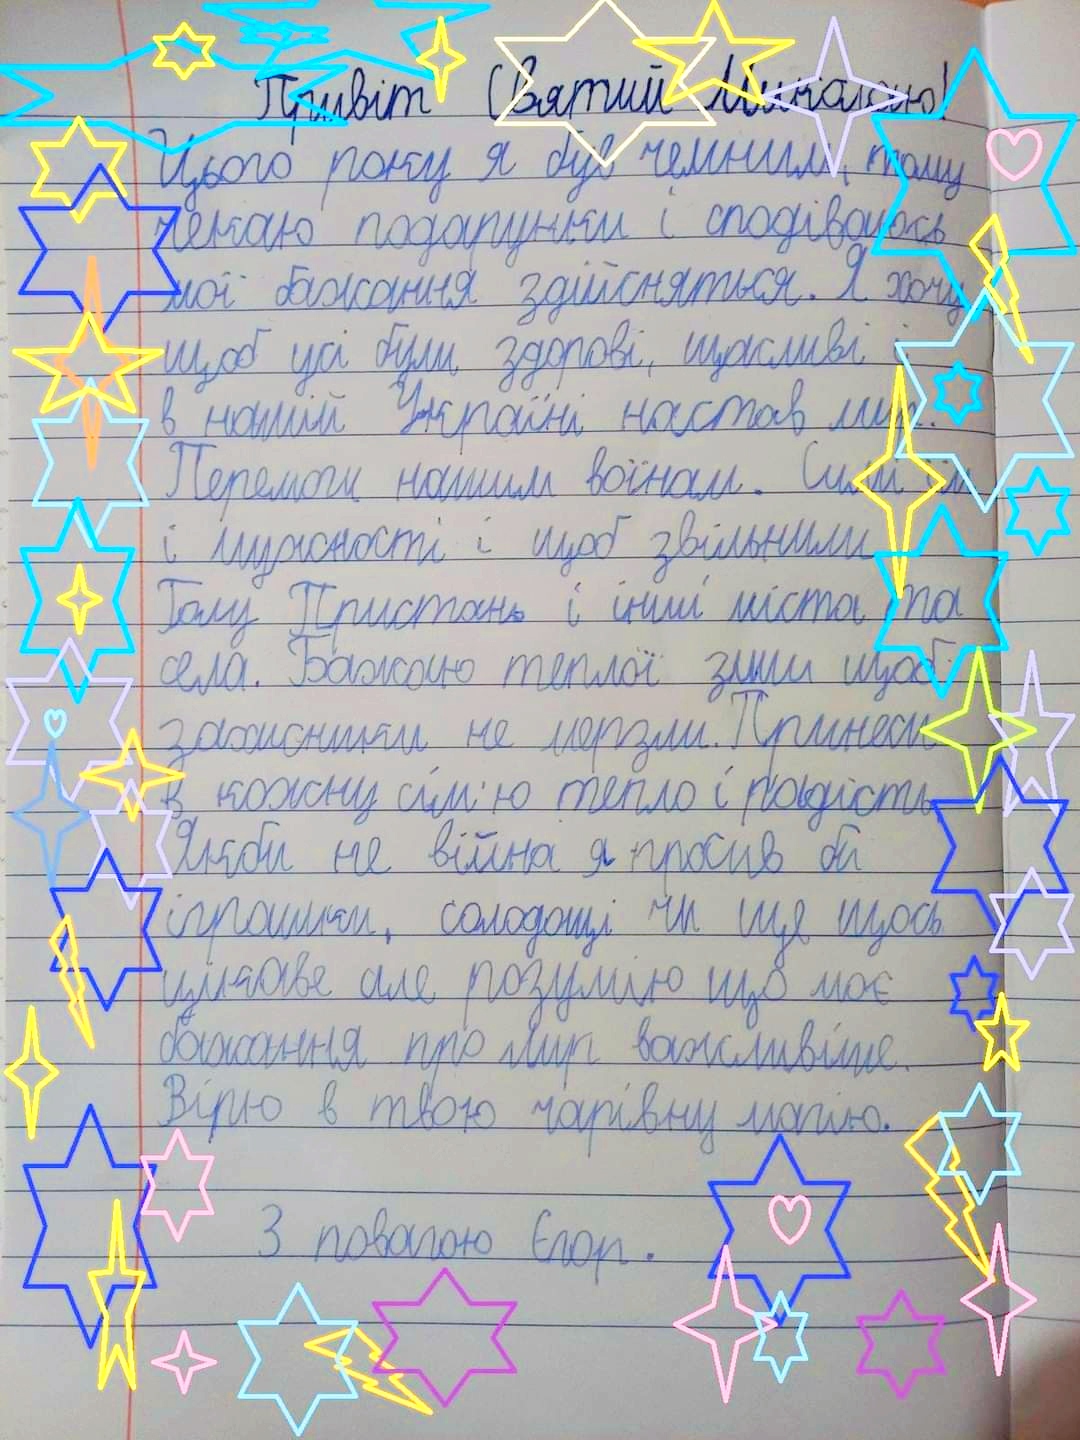 Привіт Святий Миколаю!
Цього року я був чемним, тому
чекаю подарунки і сподіваюсь
мої бажання здійсняться. Я хочу
щоб усі були здорові, щасливі і
в нашій Україні настав мир.
Перемоги нашим воїнам. Сили їм
і мужності і щоб звільнили
Голу Пристань і інші міста та
села. Бажаю теплої зими щоб
захисники не мерзли. Принеси
в кожну сім'ю тепло і радість
Якби не війна я просив би
іграшки, солодощі чи ще щось
цікаве але розумію що моє
бажання про мир важливіше.
Вірю в твою чарівну магію.
З повагою Єгор.